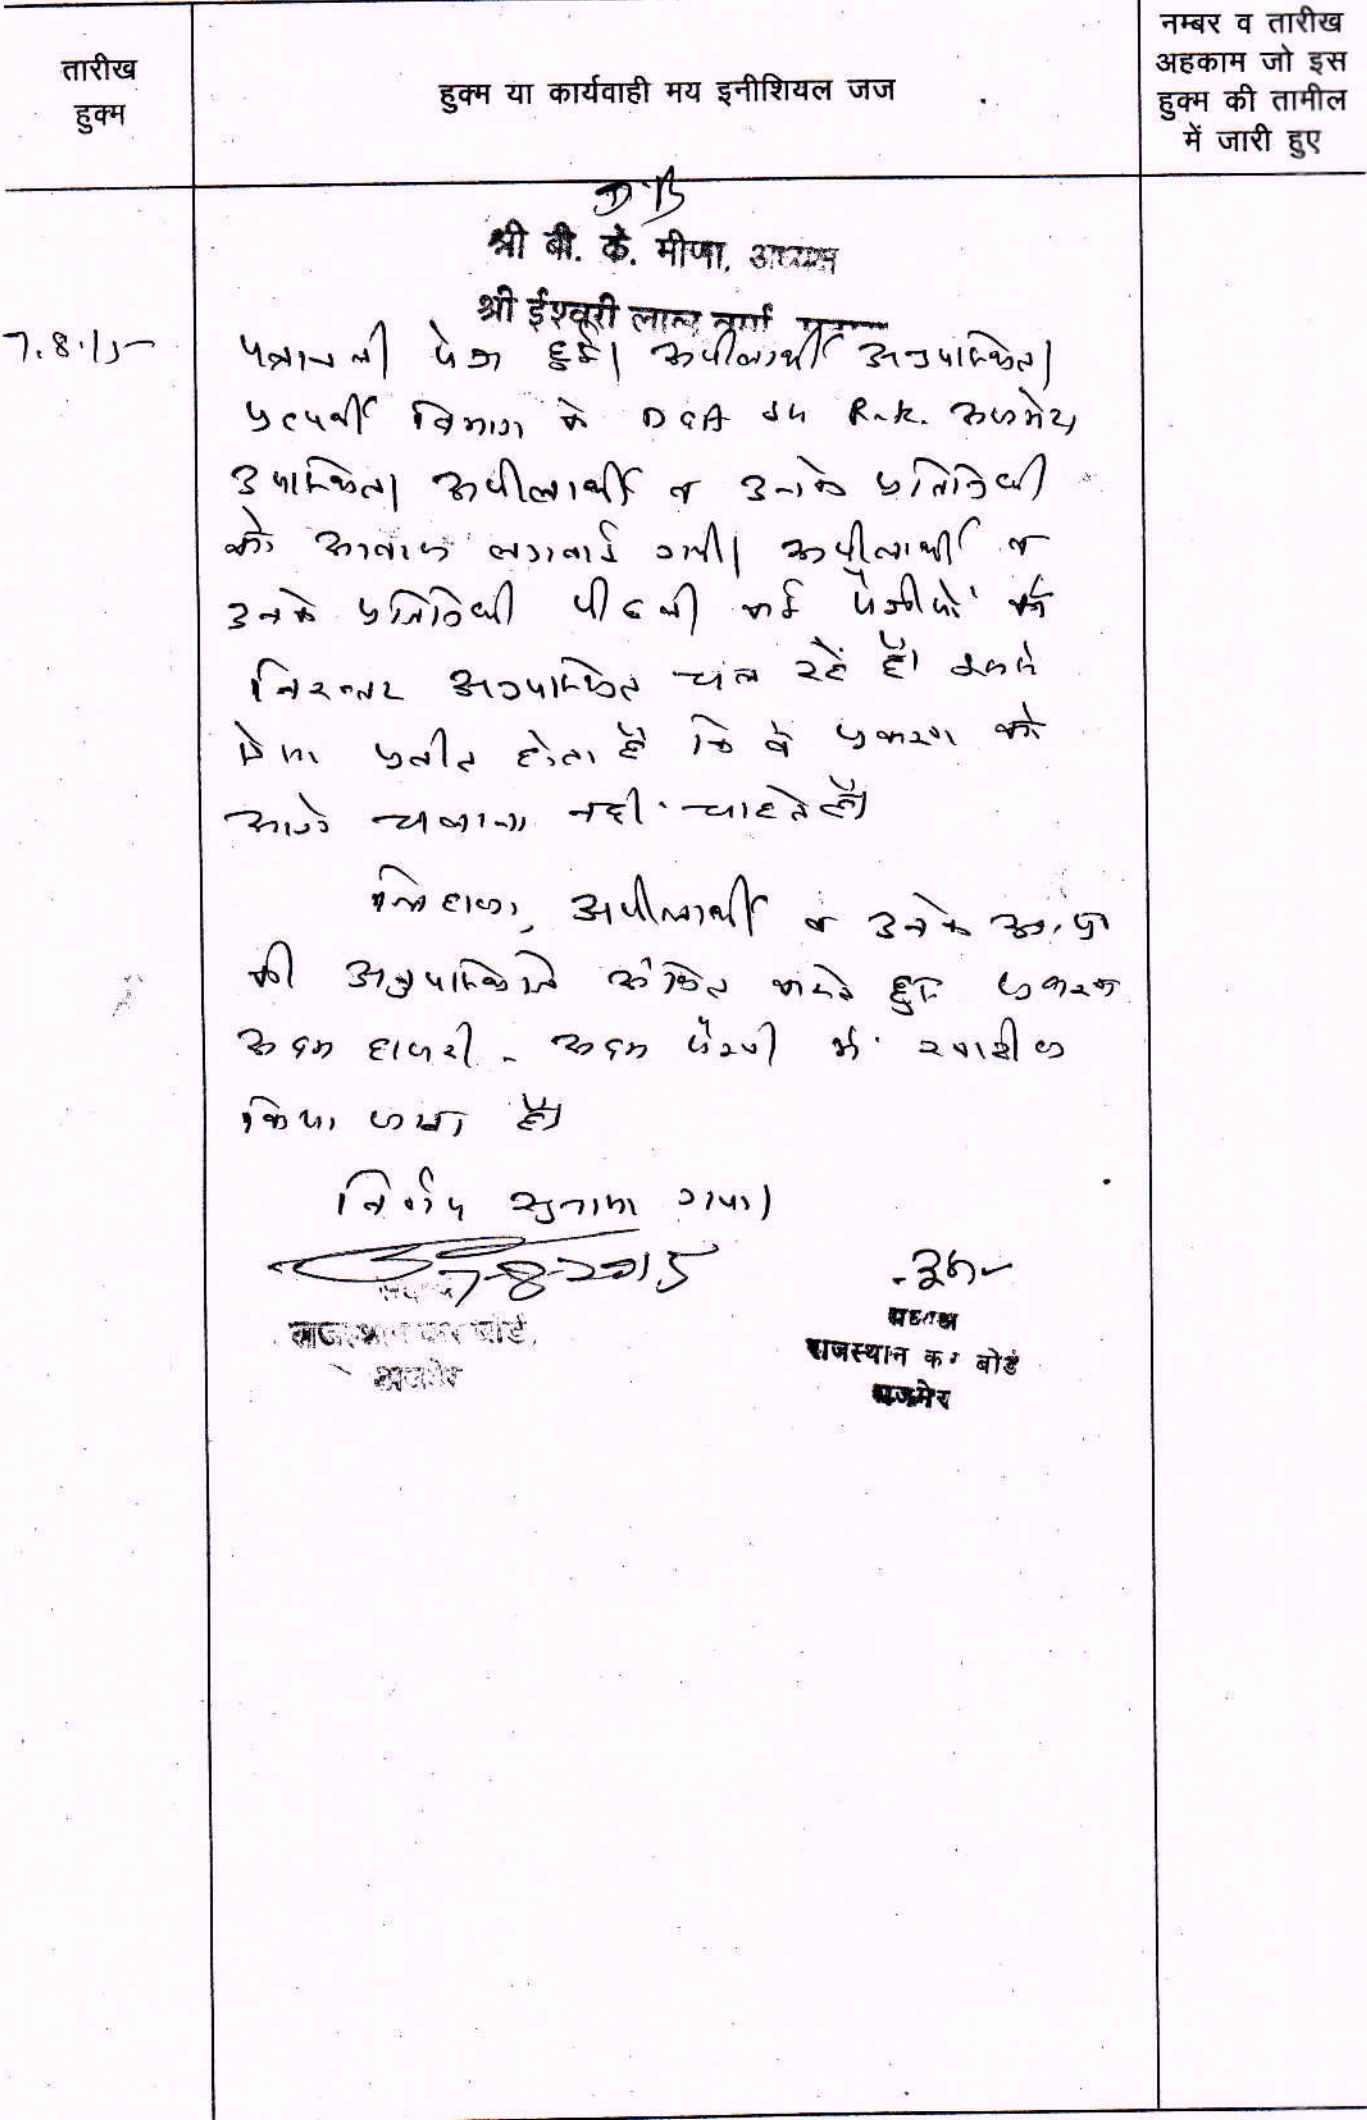 तारीख
हुक्म
हुक्म या कार्यवाही मय इनीशियल जज
नम्बर व तारीख
अहकाम जो इस
हुक्म की तामील
में जारी हुए
DB
श्री बी. के. मीणा, अध्यक्ष
श्री ईश्वरी लाल वर्मा, सदस्य
7.8.15
पत्रावली पेश हुई। अपीलार्थी अनुपस्थित।
प्रत्यर्थी विभाग के DGA श्री R.K. अजमेरा
उपस्थित। अपीलार्थी व उनके प्रतिनिधी
को आवाज लगवाई गयी। अपीलार्थी व
उनके प्रतिनिधी पीछली कई पेशीयों से
निरन्तर अनुपस्थित चल रहें है। इससे
ऐसा प्रतीत होता है कि वे प्रकरण को
आगे चलाना नहीं चाहते है।
लिहाजा, अपीलार्थी व उनके अ.प्र.
की अनुपस्थिति अंकित करते हुए प्रकरण
अदम हाजरी - अदम पैरवी में खारीज
किया जाता है।
निर्णय सुनाया गया।
7-8-2015
सदस्य
राजस्थान कर बोर्ड,
अजमेर
अध्यक्ष
राजस्थान कर बोर्ड
अजमेर